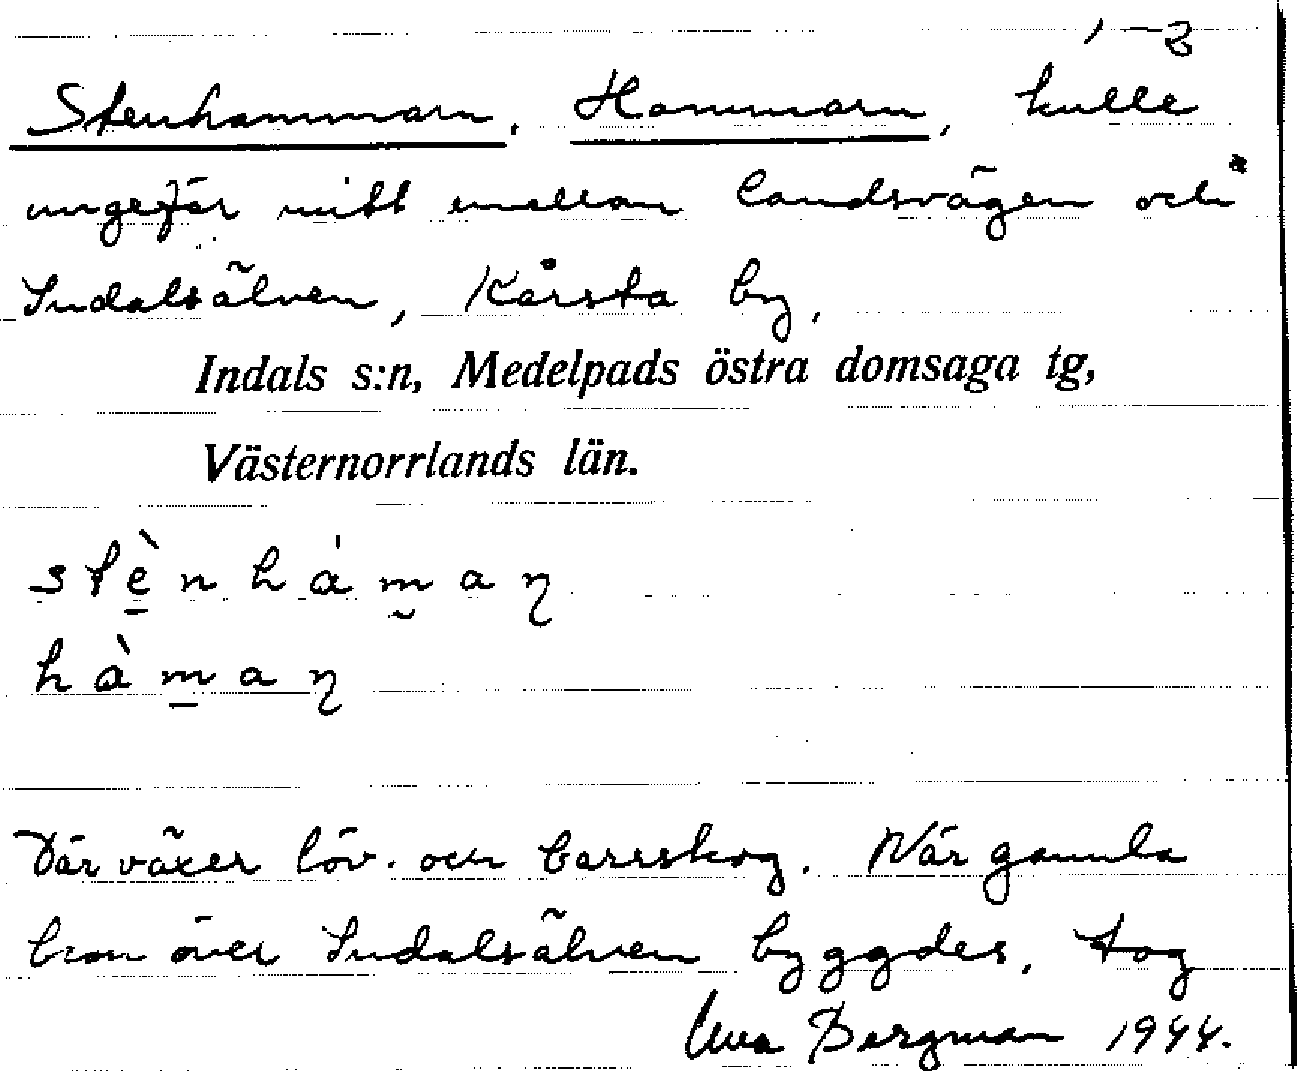 1-3
Stenhammarn, Hammarn, kulle
ungefär mitt emellan landsvägen och
Indalsälven, Kårsta by,
Indals s:n, Medelpads östra domsaga tg,
Västernorrlands län.
stènhámaɳ
hàmaɳ
Där växer löv- och barrskog. När gamla
bron över Indalsälven byggdes, tog
Bergman 1944.